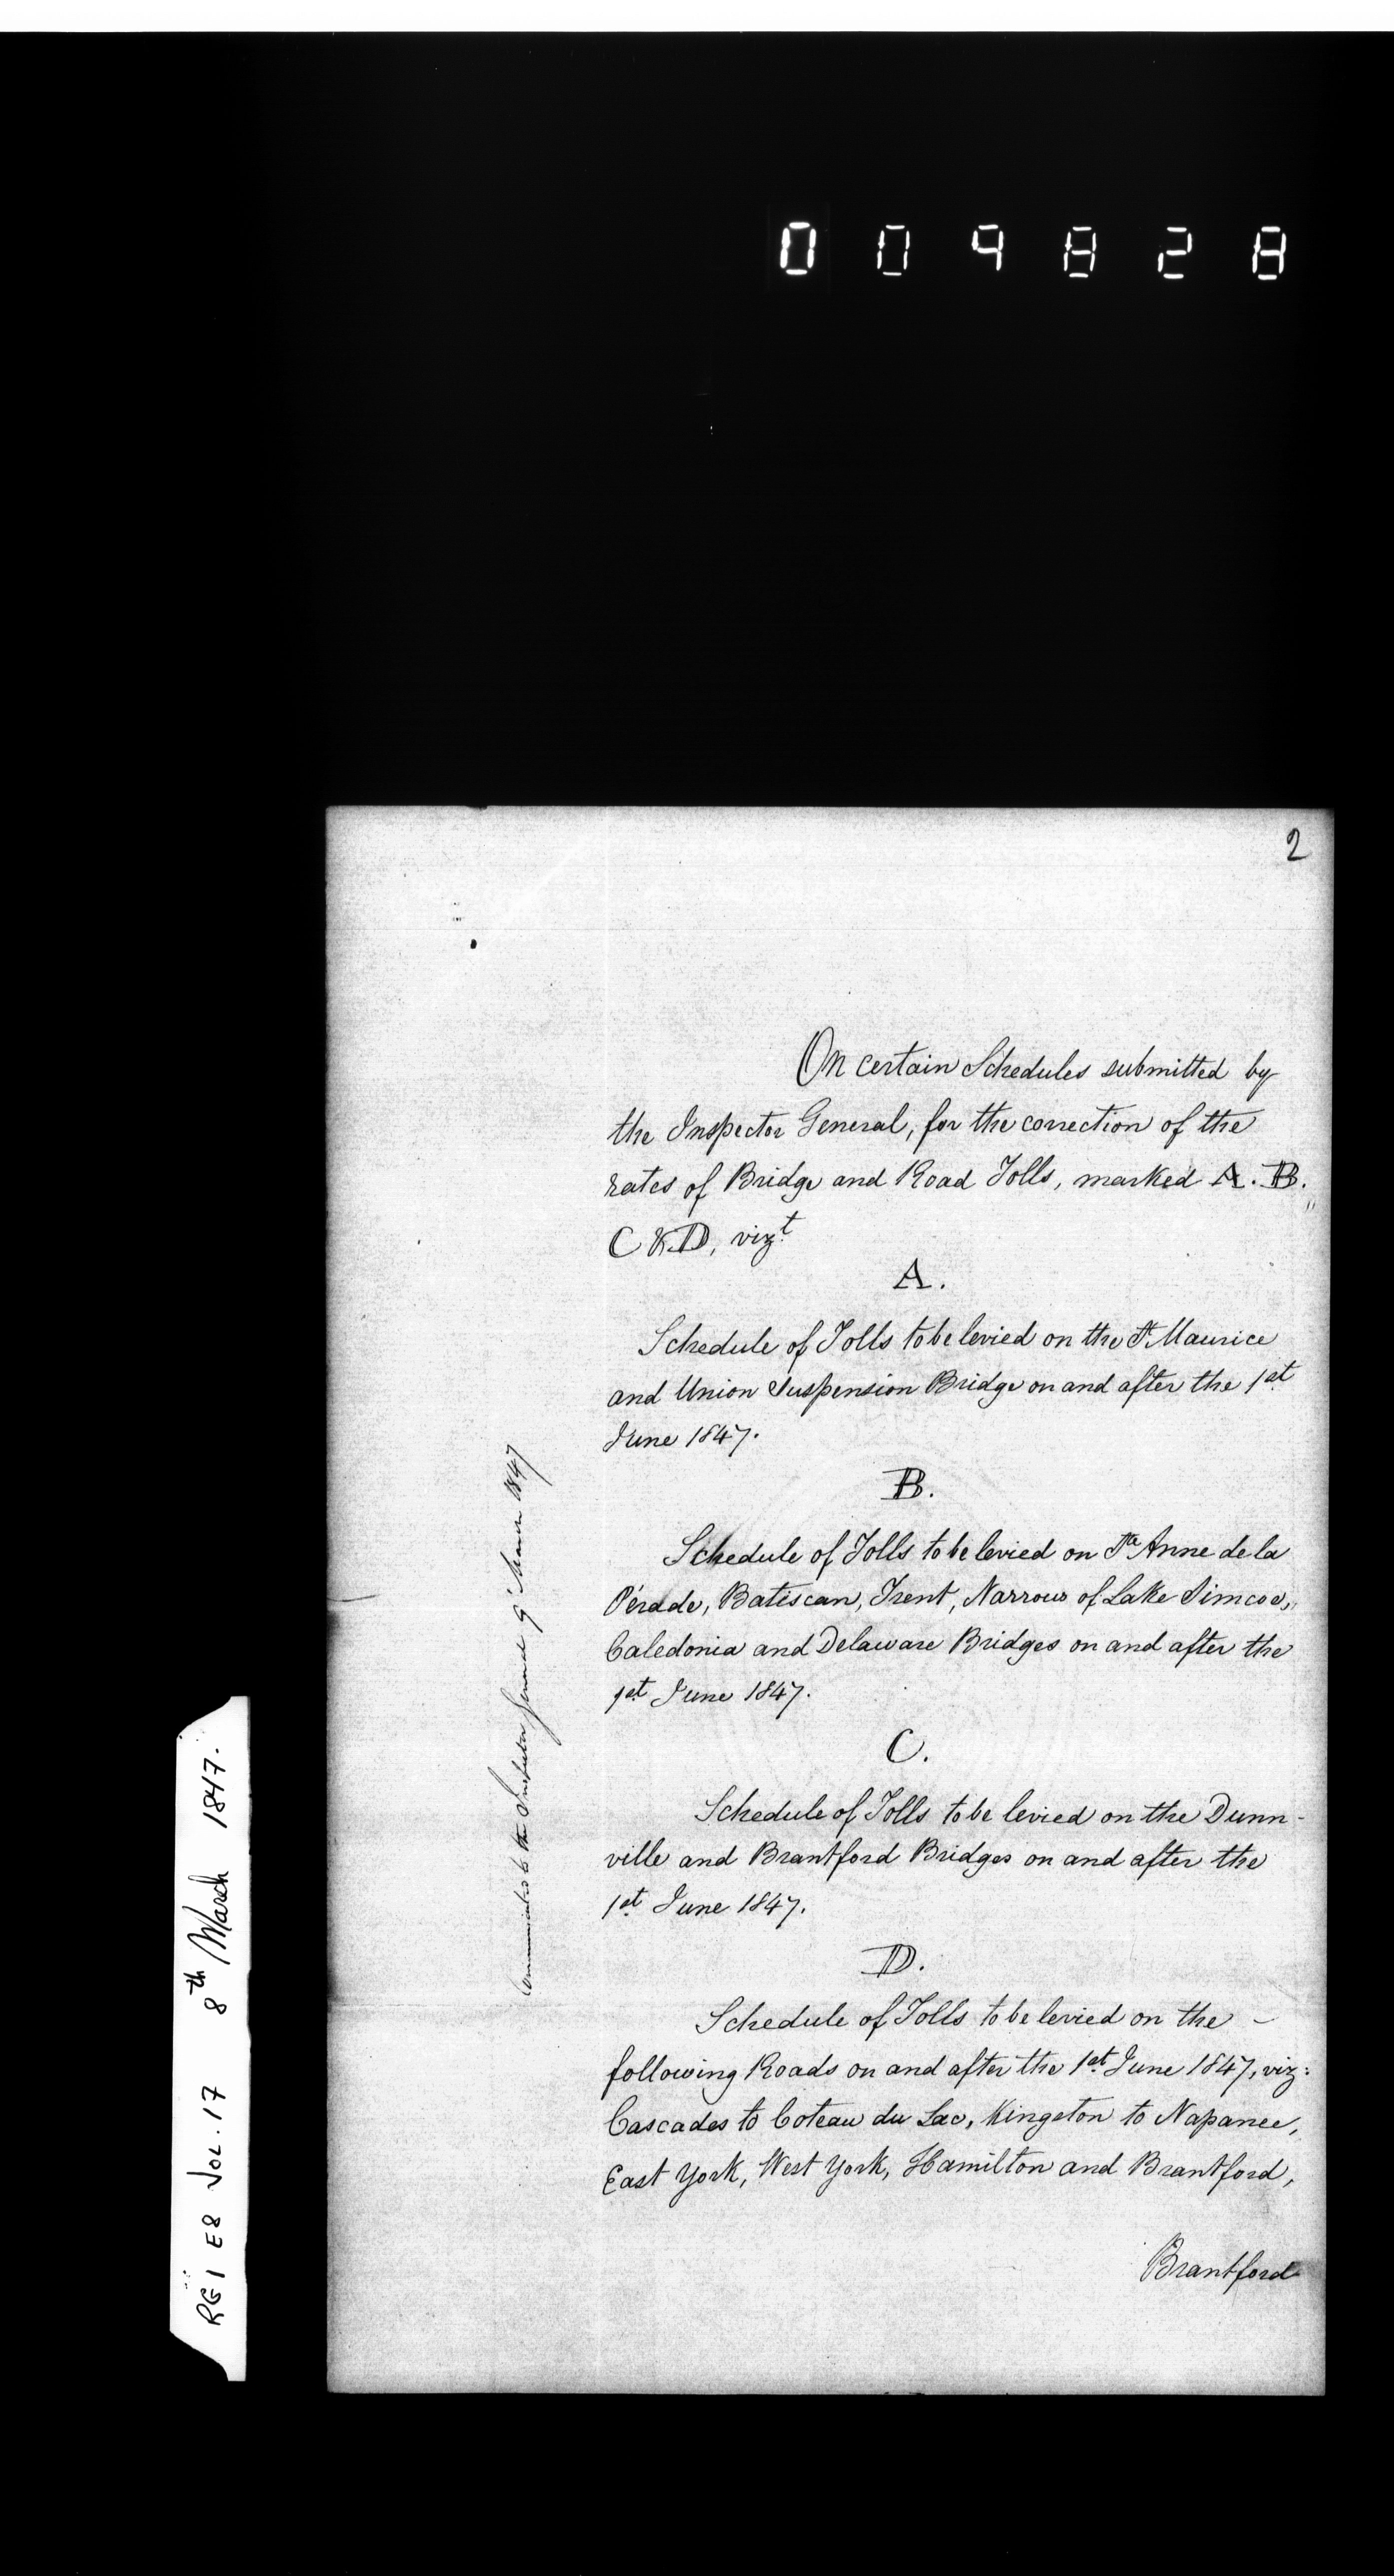 009828
2
On certain Schedules submitted by
the Inspector General, for the correction of the
rates of Bridge and Road Tolls, marked A. B.
C & D, vizt
A.
Schedule of Tolls to be levied on the St Maurice
and Union Suspension Bridge on and after the 1st
June 1847.
B.
Schedule of Tolls to be levied on Ste Anne de la
Pérade, Batiscan, Trent, Narrows of Lake Simcoe,
Caledonia and Delaware Bridges on and after the
1st June 1847.
C.
Schedule of Tolls to be levied on the Dunn-
ville and Brantford Bridges on and after the
1st June 1847.
D.
Schedule of Tolls to be levied on the
following Roads on and after the 1st June 1847, viz:
Cascades to Coteau du Lac, Kingston to Napanee,
East York, West York, Hamilton and Brantford,
Brantford
Communicated to the Inspector General 9 March 1847
RG 1 E8 VOL. 17 8th March 1847.